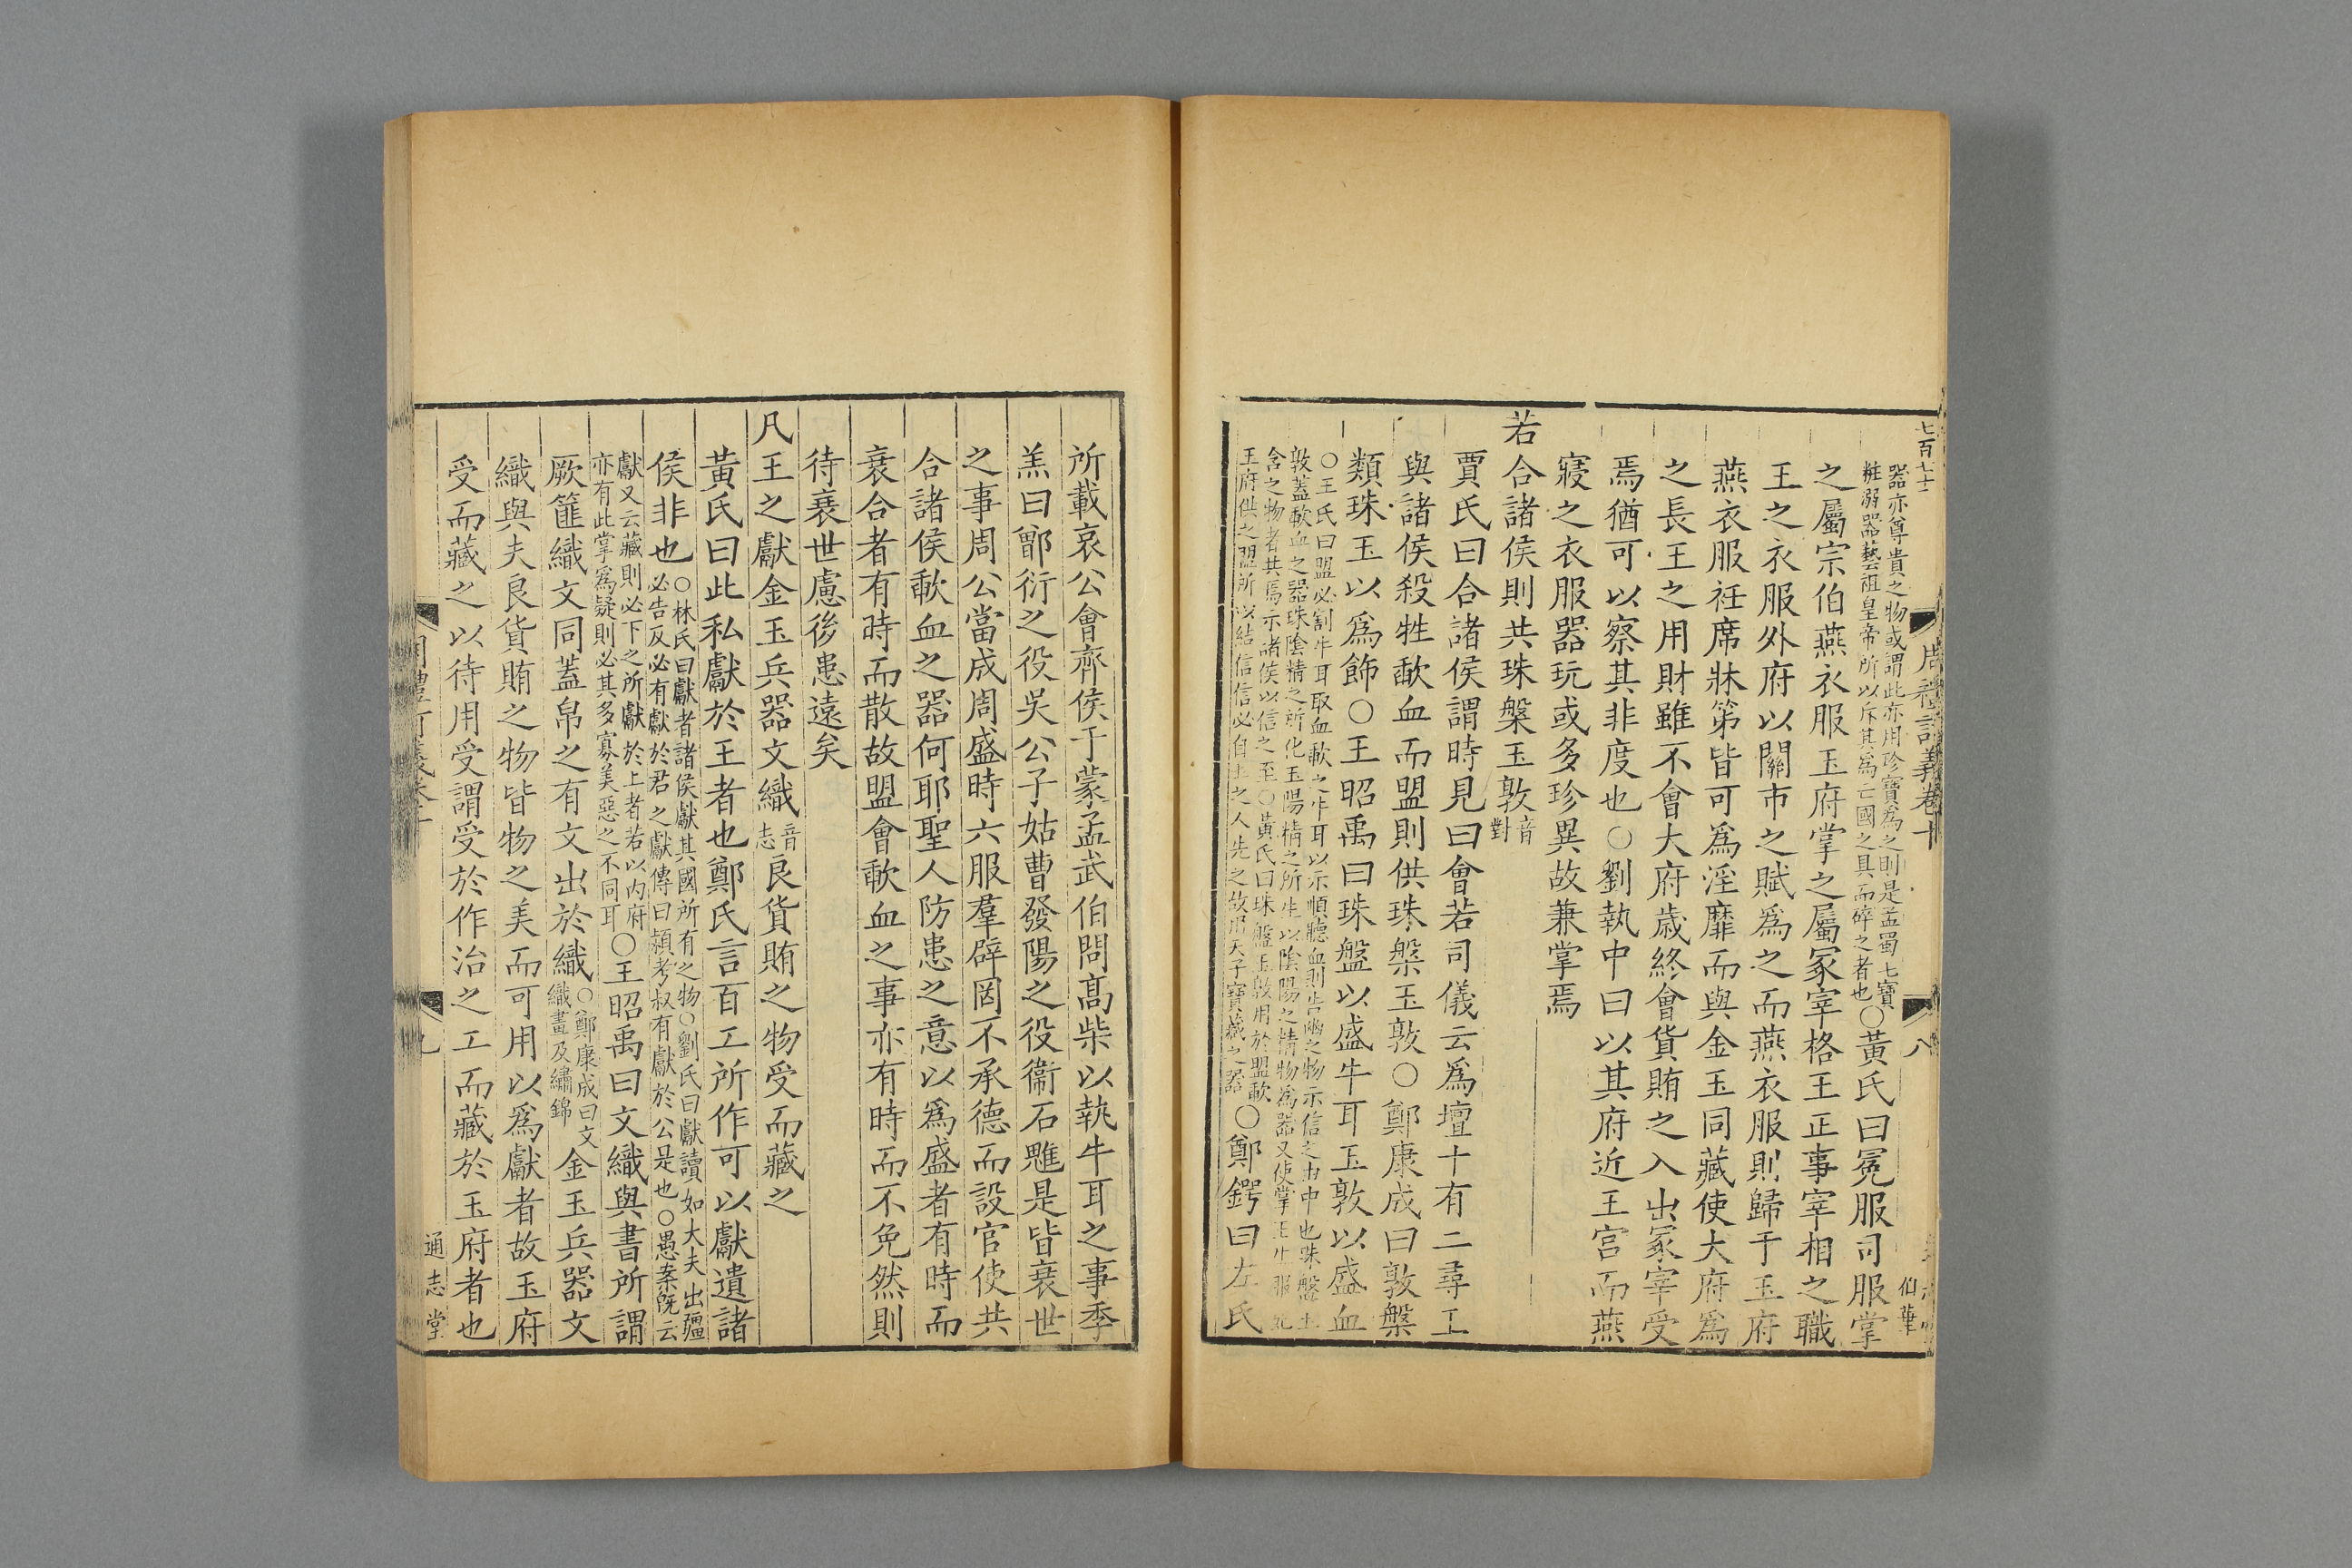 七百七十一
周禮訂義卷十
八
伯華
器亦尊貴之物或謂此亦用珍寶爲之則是孟蜀七寶
粧溺器藝祖皇帝所以斥其爲亡國之具而碎之者也○黃氏曰冕服司服掌
之屬宗伯燕衣服玉府掌之屬冢宰格王正事宰相之職
王之衣服外府以關市之賦爲之而燕衣服則歸于玉府
燕衣服衽席牀第皆可爲淫靡而與金玉同藏使大府爲
之長王之用財雖不會大府歳終會貨賄之入出冢宰受
焉猶可以察其非度也○劉執中曰以其府近王宮而燕
寢之衣服器玩或多珍異故兼掌焉
若合諸侯則共珠槃玉敦音對
賈氏曰合諸侯謂時見曰會若司儀云爲壇十有二尋王
與諸侯殺牲歃血而盟則供珠槃玉敦○鄭康成曰敦槃
類珠玉以爲飾○王昭禹曰珠盤以盛牛耳玉敦以盛血
○王氏曰盟必割牛耳取血歃之牛耳以示順聽血則告幽之物示信之由中也珠盤玉
敦蓋歃血之器珠陰精之所化玉陽精之所生以陰陽之精物爲器又使掌王
含之物者共焉示諸侯以信之至○黃氏曰珠盤玉敦用於盟歃
玉府供之盟所以結信信必自王之人先之故用天子寶藏之器○鄭鍔曰左氏
所載哀公會齊侯于蒙孟武伯問髙柴以執牛耳之事季
羔曰鄫衍之役吳公子姑曹發陽之役衞石魋是皆衰世
之事周公當成周盛時六服羣辟罔不承德而設官使共
合諸侯歃血之器何耶聖人防患之意以爲盛者有時而
衰合者有時而散故盟會歃血之事亦有時而不免然則
待衰世慮後患遠矣
凡王之獻金玉兵器文織音志良貨賄之物受而藏之
黃氏曰此私獻於王者也鄭氏言百工所作可以獻遺諸
侯非也○林氏曰獻者諸侯獻其國所有之物○劉氏曰獻讀如大夫出疆
必告反必有獻於君之獻傳曰潁考叔有獻於公是也○愚案旣云
獻又云藏則必下之所獻於上者若以內府
亦有此掌爲疑則必其多寡美惡之不同耳○王昭禹曰文織與書所謂
厥篚織文同蓋帛之有文出於織○鄭康成曰文織畫及繡錦金玉兵器文
織與夫良貨賄之物皆物之美而可用以爲獻者故玉府
受而藏之以待用受謂受於作治之工而藏於玉府者也
九
通志堂